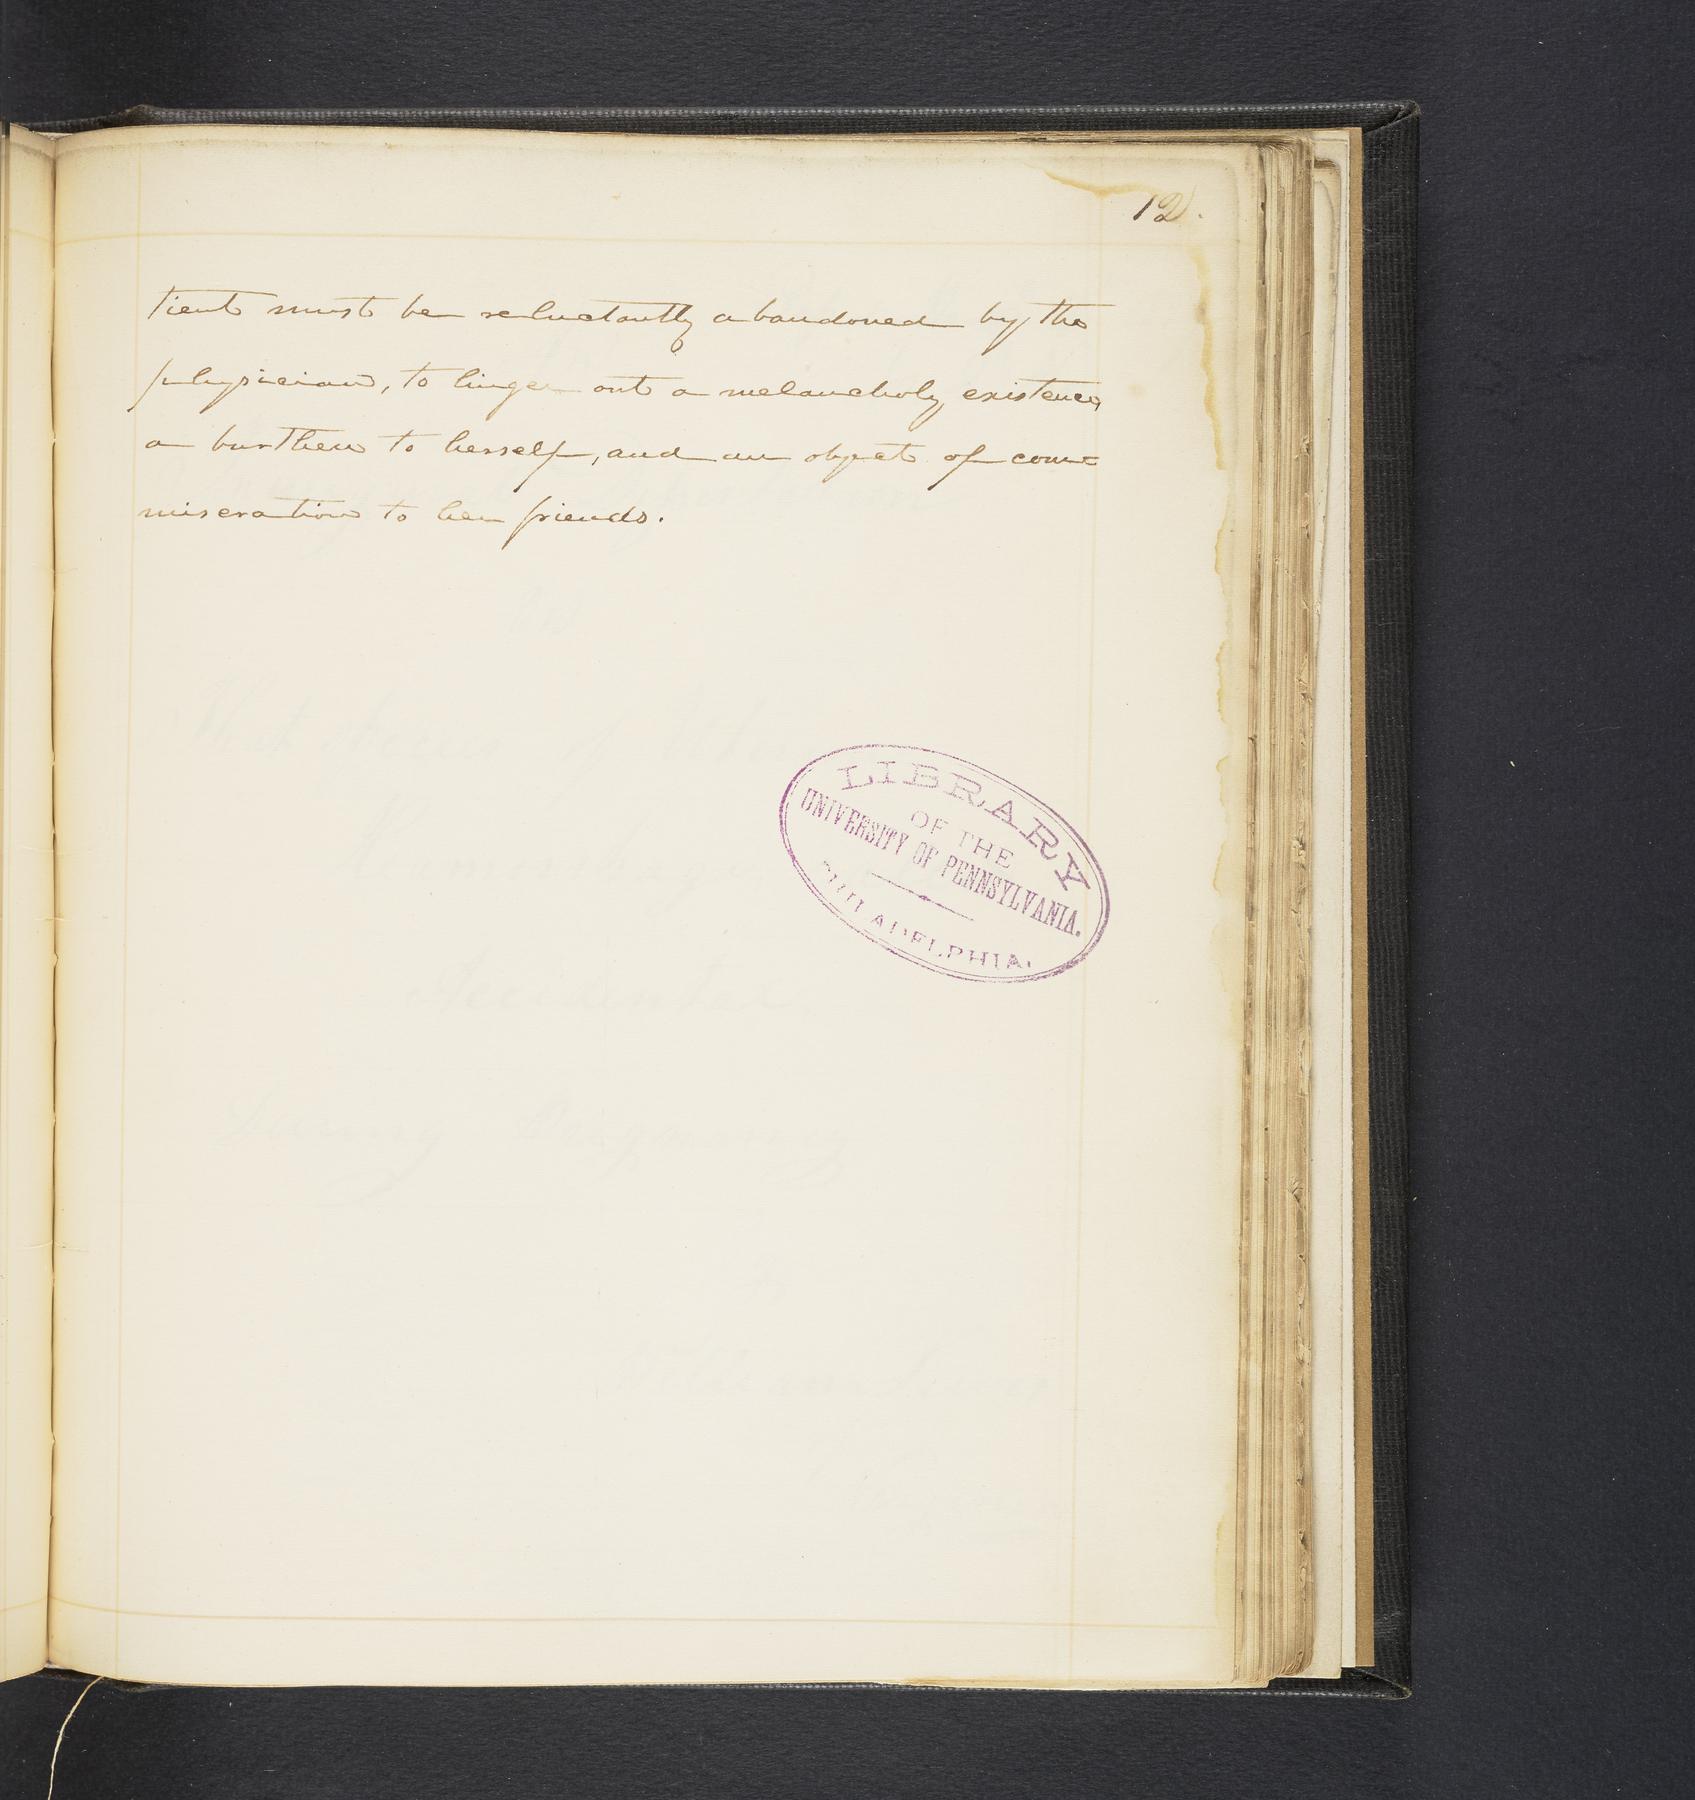 12.
tient must be reluctantly abandoned by the
physician, to linger out a melancholy existence
a burthen to herself, and an object of com=
miseration to her friends.
LIBRARY
OF THE
UNIVERSITY OF PENNSYLVANIA.
PHILADELPHIA.